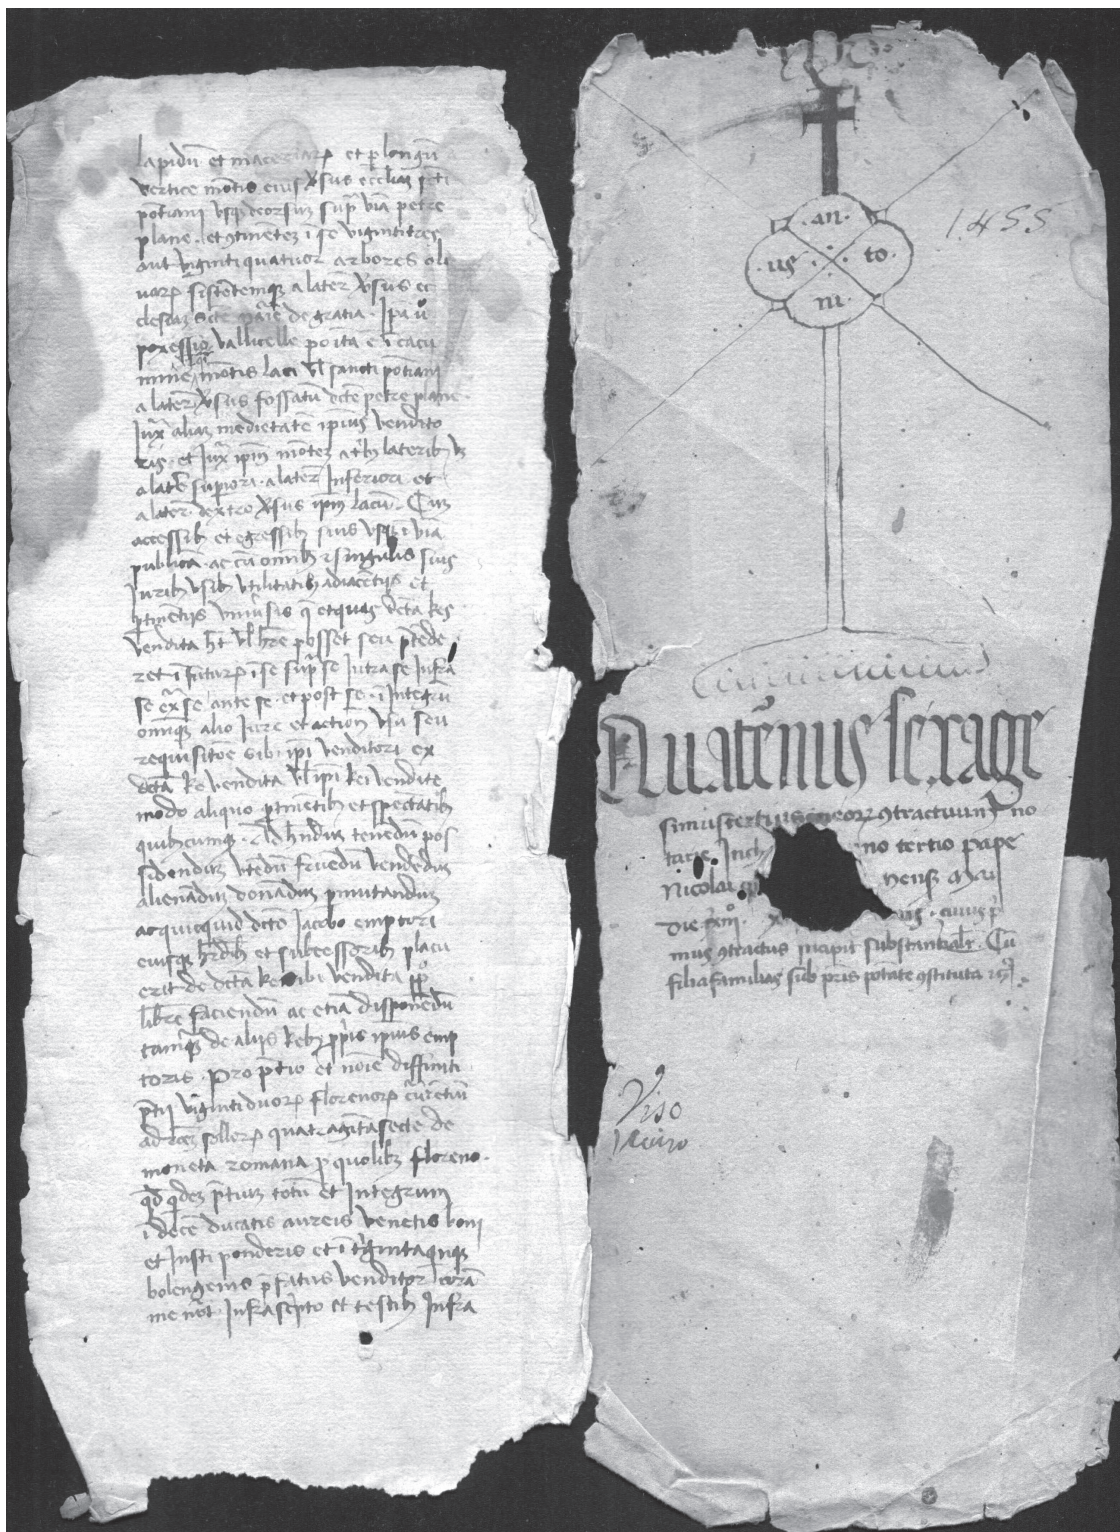 lapidū et maceriarꝝ et ꝑ longū
vertice mōtis eius vͬsus eccliaz scti
potiani vsqꝫ deorsuz supͣ via petre
plane . et ꝯtinētez i se vigintitres
aut vigintiquatuor arbores oli
uarꝝ sistētemqꝫ a laterͤ vͬsus ec
clesiaz scte marie de gratia . Ipa ū
possessio vallicelle posita ē i cacu
mine mōtis laci vl sancti potiani
a laterͤ vͬsus fossatū dcte petre plane .
Juxͣ aliaz medietatē ipius vendito
ris . et Juxͣ ipm mōtez a tͥbꝫ lateribꝫ vꝫ
a latē supͥiori . a laterͤ Inferiori . et
a laterͤ dextro vͬsus ipm lacū . Cuz
accessibꝫ et egressibꝫ suis vsqꝫ i viā
publicā . ac cū omibꝫ et singulis suis
Juribꝫ vsibꝫ vtilitatibꝫ adiacētijs et
ꝑtinētijs vniūsis q̄ et quas dcta res
vendita ht vl hre posset seu p̄tēde
ret i futurꝝ i se supͣ se Intra se Infrā
se exͣ se ante se et post se . i Integrū
omiqꝫ alio Jure et actione vsu seu
requisitōe sibi ipi venditori ex
dcta re vendita vl ipi rei vendite
modo aliquo ꝑtinētibꝫ et spectātibꝫ
quibꝫcumqꝫ . Ad hnduz tenēdū pos
sidenduz vtēdū fruēdū vendēduz
alienāduz donāduz ꝑmutanduz
ac quicquid dcto Jacobo emptori
eiusqꝫ hrdibꝫ et successoribꝫ placu
erit de dcta re sibi vendita ꝑpͦ
libere faciendū ac etiā disponēdū
tamqꝫ de alijs rebꝫ ꝓprijs ipius emp
toris . Pro p̄tio et noīe diffiniti
p̄tij vigintiduorꝝ florenorꝝ curētiū
ad rōez sollorꝝ quatragitasette de
moneta romana ꝓ quolibꝫ floreno .
qd qdez p̄tiuz totū et Integrum
i decē ducatis aureis venetis boni
et Iusti ponderis et i tͥgintaqnqꝫ
bolengenis p̄fatus venditor corā
me not Infrascͥpto et testibꝫ Infra
.an.
.us.
to.
ni.
1455
Quatēnus sexage
simustertius meorꝫ ꝯtractuum no
tarie Indi no tertio pape
Nicolai mensis Maij
Die xxiij . cuius pͥ
mus ꝯtractus incipit substantialr . Cū
filiafamilias sub pris potate ꝯstituta
Viso